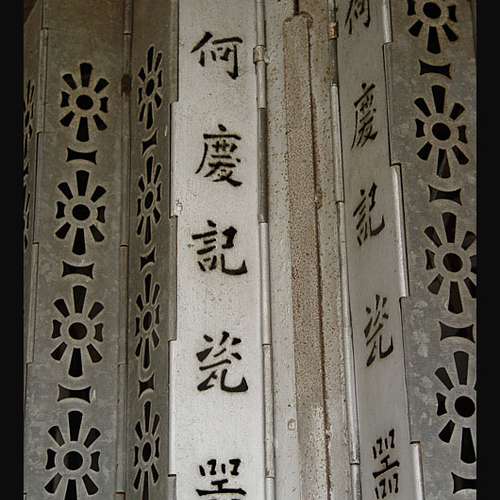 何慶記瓷器
何慶記瓷器